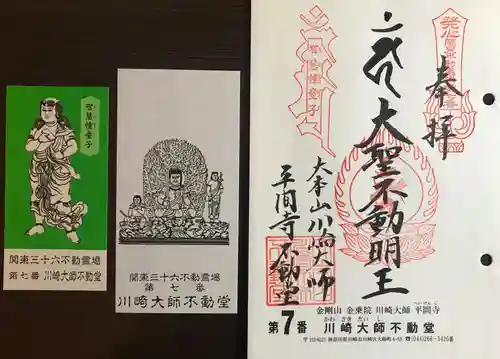 智慧幢童子
関東三十六不動霊場
第七番 川崎大師不動堂
関東三十六不動霊場
第七番
川崎大師不動堂
奉拝
大聖不動明王
大本山川崎大師
平間寺 不動堂
智慧幢童子
金剛山 金乗院 川崎大師 平間寺
へいけんじ
かわさきだいし
第7番 川崎大師不動堂